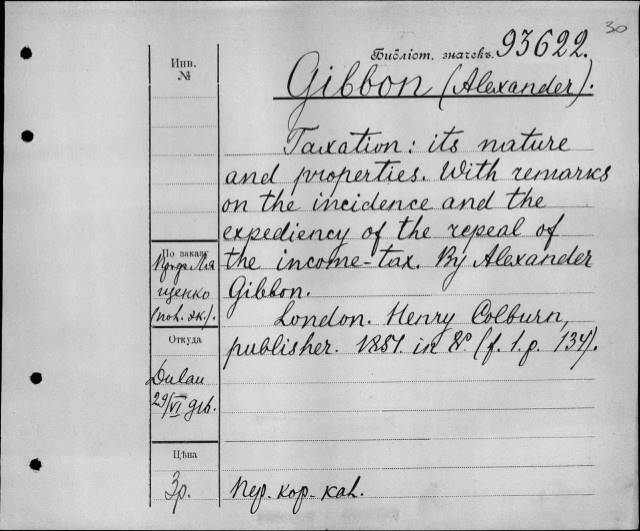 30
Библіот. значекъ 93622.
Инв.
№
Gibbon (Alexander).
Taxation: its nature
and properties. With remarks
on the incidence and the
expediency of the repeal of
the income-tax. By Alexander
Gibbon.
London. Henry Colburn,
publisher. 1851. in 8º (f. 1. p. 134).
По заказу
щенко
(пол. эк.).
Откуда
Dulau
29/VI
Цѣна
3р.
Пер. кор. кал.